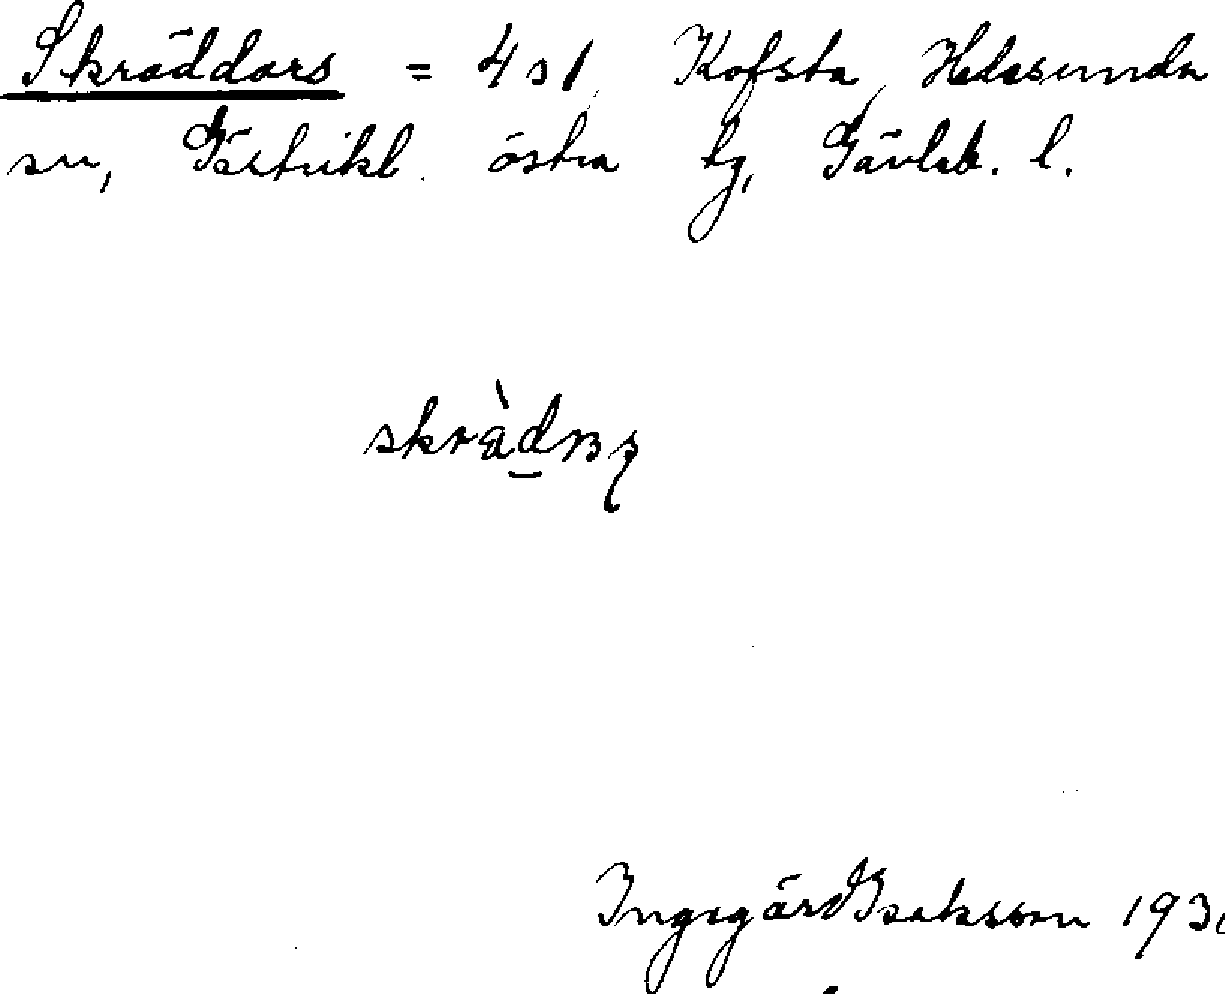 Skräddars = 4 s 1, Kofsta, Hedesunda
sn, Gästrikl. östra tg, Gävleb. l.
Ingegärd Isaksson 193